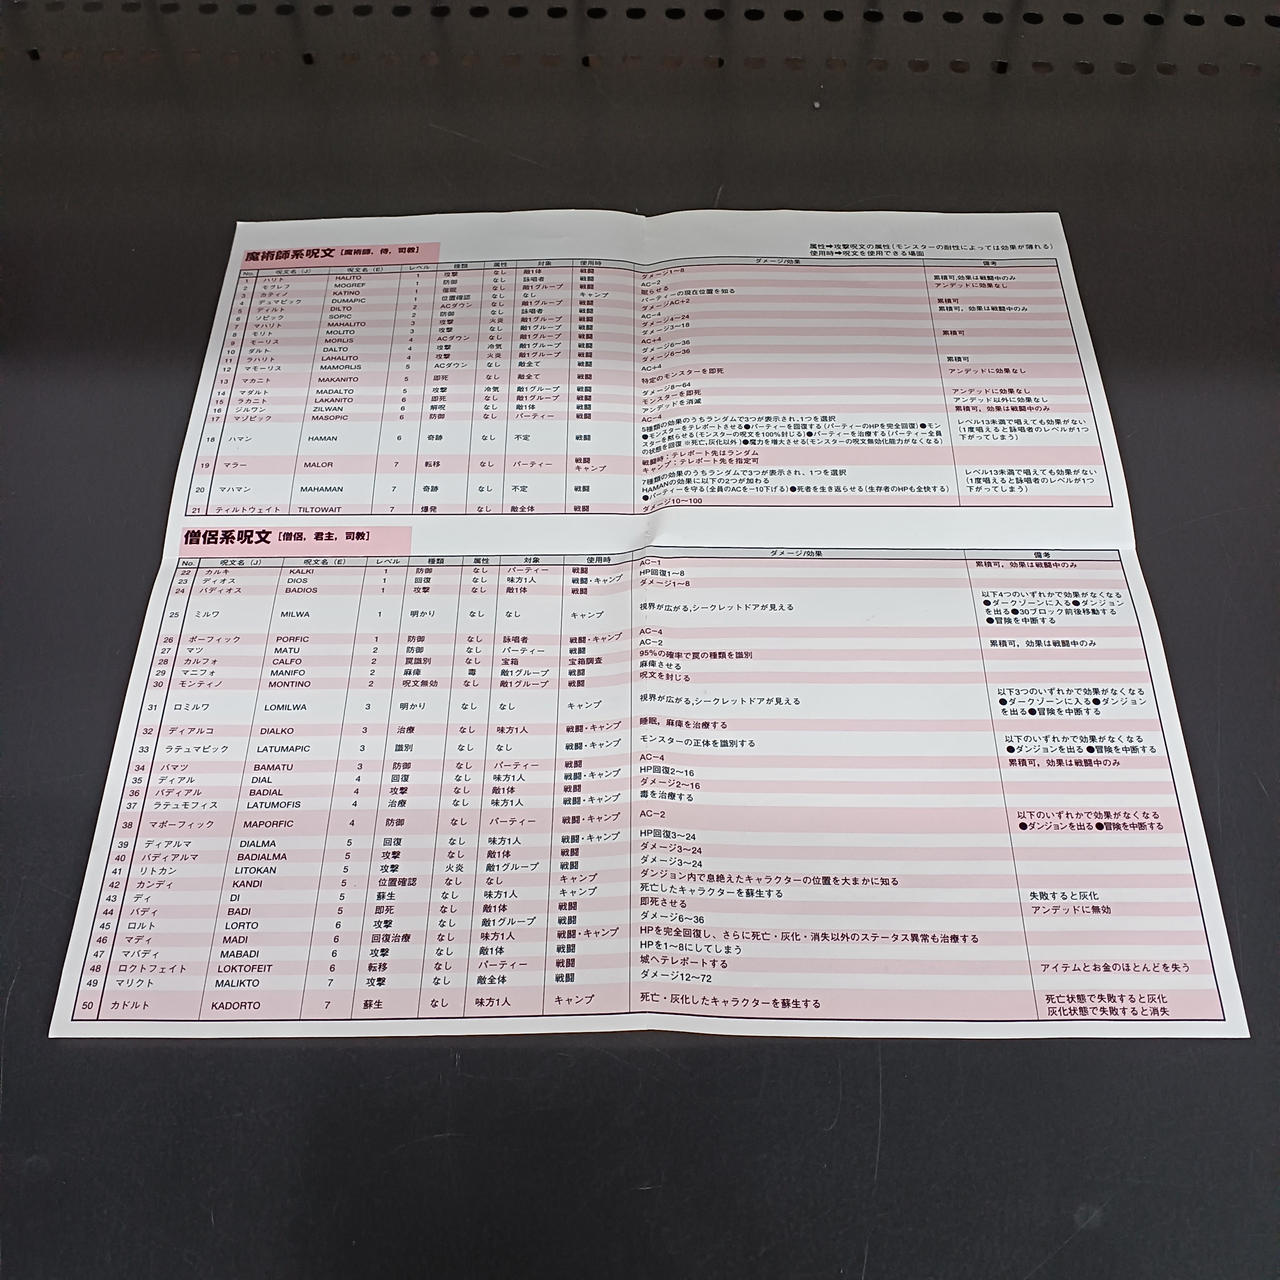 魔術師系呪文 [魔術師, 侍, 司教]
属性➡攻撃呪文の属性(モンスターの耐性によっては効果が薄れる)
使用時➡呪文を使用できる場面
No. 呪文名(J) 呪文名(E) レベル 種類 属性 対象 使用時 ダメージ/効果 備考
1 ハリト HALITO 1 攻撃 なし 敵1体 戦闘 ダメージ1〜8
2 モグレフ MOGREF 1 防御 なし 詠唱者 戦闘 AC−2 累積可,効果は戦闘中のみ
3 カティノ KATINO 1 催眠 なし 敵1グループ 戦闘 眠らせる アンデッドに効果なし
4 デュマピック DUMAPIC 1 位置確認 なし なし キャンプ パーティーの現在位置を知る
5 ディルト DILTO 2 ACダウン なし 敵1グループ 戦闘 ダメージAC+2 累積可
6 ソピック SOPIC 2 防御 なし 詠唱者 戦闘 AC−4 累積可,効果は戦闘中のみ
7 マハリト MAHALITO 3 攻撃 火炎 敵1グループ 戦闘 ダメージ4〜24
8 モリト MOLITO 3 攻撃 なし 敵1グループ 戦闘 ダメージ3〜18
9 モーリス MORLIS 4 ACダウン なし 敵1グループ 戦闘 AC+4 累積可
10 ダルト DALTO 4 攻撃 冷気 敵1グループ 戦闘 ダメージ6〜36
11 ラハリト LAHALITO 4 攻撃 火炎 敵1グループ 戦闘 ダメージ6〜36
12 マモーリス MAMORLIS 5 ACダウン なし 敵全て 戦闘 AC+4 累積可
13 マカニト MAKANITO 5 即死 なし 敵全て 戦闘 特定のモンスターを即死 アンデッドに効果なし
14 マダルト MADALTO 5 攻撃 冷気 敵1グループ 戦闘 ダメージ8〜64
15 ラカニト LAKANITO 6 即死 なし 敵1グループ 戦闘 モンスターを即死 アンデッドに効果なし
16 ジルワン ZILWAN 6 解呪 なし 敵1体 戦闘 アンデッドを消滅 アンデッド以外に効果なし
17 マソピック MASOPIC 6 防御 なし パーティー 戦闘 AC−4 累積可, 効果は戦闘中のみ
18 ハマン HAMAN 6 奇跡 なし 不定 戦闘 5種類の効果のうちランダムで3つが表示され,1つを選択
●モンスターをテレポートさせる●パーティーを回復する(パーティーのHPを完全回復)●モン
スターを黙らせる(モンスターの呪文を100%封じる)●パーティーを治療する(パーティー全員
の状態を回復 ※死亡,灰化以外)●魔力を増大させる(モンスターの呪文無効化能力がなくなる)
レベル13未満で唱えても効果がない
(1度唱えると詠唱者のレベルが1つ
下がってしまう)
19 マラー MALOR 7 転移 なし パーティー 戦闘 キャンプ
戦闘時:テレポート先はランダム
キャンプ:テレポート先を指定可
20 マハマン MAHAMAN 7 奇跡 なし 不定 戦闘 7種類の効果のうちランダムで3つが表示され、1つを選択
HAMANの効果に以下の2つが加わる
●パーティーを守る(全員のACを−10下げる)●死者を生き返らせる(生存者のHPも全快する)
レベル13未満で唱えても効果がない
(1度唱えると詠唱者のレベルが1つ
下がってしまう)
21 ティルトウェイト TILTOWAIT 7 爆発 なし 敵全体 戦闘 ダメージ10〜100
僧侶系呪文 [僧侶, 君主, 司教]
No. 呪文名(J) 呪文名(E) レベル 種類 属性 対象 使用時 ダメージ/効果 備考
22 カルキ KALKI 1 防御 なし パーティー 戦闘 AC−1 累積可, 効果は戦闘中のみ
23 ディオス DIOS 1 回復 なし 味方1人 戦闘・キャンプ HP回復1〜8
24 バディオス BADIOS 1 攻撃 なし 敵1体 戦闘 ダメージ1〜8
25 ミルワ MILWA 1 明かり なし なし キャンプ 視界が広がる,シークレットドアが見える
以下4つのいずれかで効果がなくなる
●ダークゾーンに入る●ダンジョン
を出る●30ブロック前後移動する
●冒険を中断する
26 ポーフィック PORFIC 1 防御 なし 詠唱者 戦闘・キャンプ AC−4
27 マツ MATU 2 防御 なし パーティー 戦闘 AC−2 累積可, 効果は戦闘中のみ
28 カルフォ CALFO 2 罠識別 なし 宝箱 宝箱調査 95%の確率で罠の種類を識別
29 マニフォ MANIFO 2 麻痺 毒 敵1グループ 戦闘 麻痺させる
30 モンティノ MONTINO 2 呪文無効 なし 敵1グループ 戦闘 呪文を封じる
31 ロミルワ LOMILWA 3 明かり なし なし キャンプ 視界が広がる,シークレットドアが見える
以下3つのいずれかで効果がなくなる
●ダークゾーンに入る●ダンジョン
を出る●冒険を中断する
32 ディアルコ DIALKO 3 治療 なし 味方1人 戦闘・キャンプ 睡眠, 麻痺を治療する
33 ラテュマピック LATUMAPIC 3 識別 なし なし 戦闘・キャンプ モンスターの正体を識別する
以下のいずれかで効果がなくなる
●ダンジョンを出る ●冒険を中断する
34 バマツ BAMATU 3 防御 なし パーティー 戦闘 AC−4 累積可, 効果は戦闘中のみ
35 ディアル DIAL 4 回復 なし 味方1人 戦闘・キャンプ HP回復2〜16
36 バディアル BADIAL 4 攻撃 なし 敵1体 戦闘 ダメージ2〜16
37 ラテュモフィス LATUMOFIS 4 治療 なし 味方1人 戦闘・キャンプ 毒を治療する
38 マポーフィック MAPORFIC 4 防御 なし パーティー 戦闘・キャンプ AC−2
以下のいずれかで効果がなくなる
●ダンジョンを出る ●冒険を中断する
39 ディアルマ DIALMA 5 回復 なし 味方1人 戦闘・キャンプ HP回復3〜24
40 バディアルマ BADIALMA 5 攻撃 なし 敵1体 戦闘 ダメージ3〜24
41 リトカン LITOKAN 5 攻撃 火炎 敵1グループ 戦闘 ダメージ3〜24
42 カンディ KANDI 5 位置確認 なし なし キャンプ ダンジョン内で息絶えたキャラクターの位置を大まかに知る
43 ディ DI 5 蘇生 なし 味方1人 キャンプ 死亡したキャラクターを蘇生する 失敗すると灰化
44 バディ BADI 5 即死 なし 敵1体 戦闘 即死させる アンデッドに無効
45 ロルト LORTO 6 攻撃 なし 敵1グループ 戦闘 ダメージ6〜36
46 マディ MADI 6 回復治療 なし 味方1人 戦闘・キャンプ HPを完全回復し、さらに死亡・灰化・消失以外のステータス異常も治療する
47 マバディ MABADI 6 攻撃 なし 敵1体 戦闘 HPを1〜8にしてしまう
48 ロクトフェイト LOKTOFEIT 6 転移 なし パーティー 戦闘 城へテレポートする アイテムとお金のほとんどを失う
49 マリクト MALIKTO 7 攻撃 なし 敵全体 戦闘 ダメージ12〜72
50 カドルト KADORTO 7 蘇生 なし 味方1人 キャンプ 死亡・灰化したキャラクターを蘇生する
死亡状態で失敗すると灰化
灰化状態で失敗すると消失